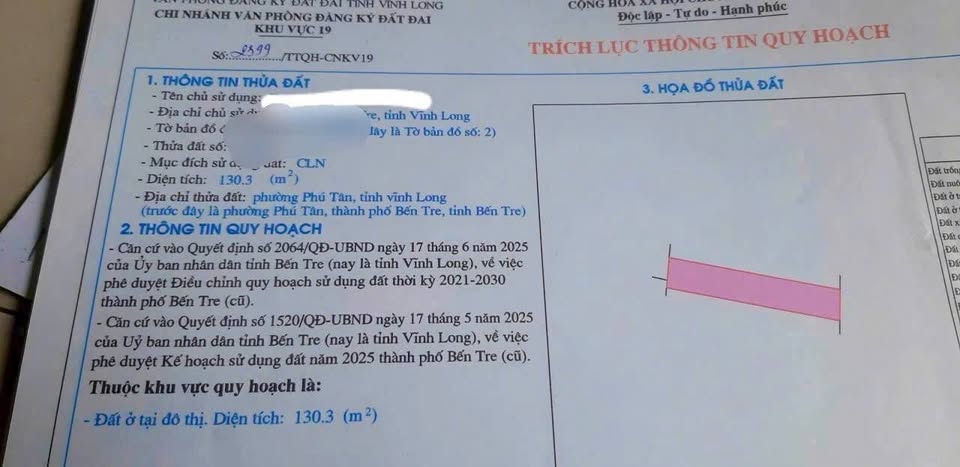 ĐĂNG KÝ ĐẤT ĐAI TỈNH VĨNH LONG
CHI NHÁNH VĂN PHÒNG ĐĂNG KÝ ĐẤT ĐAI
KHU VỰC 19
Số: 2399 /TTQH-CNKV19
CỘNG HÒA XÃ HỘI
Độc lập - Tự do - Hạnh phúc
TRÍCH LỤC THÔNG TIN QUY HOẠCH
1. THÔNG TIN THỬA ĐẤT
- Tên chủ sử dụng:
- Địa chỉ chủ sử re, tỉnh Vĩnh Long
- Tờ bản đồ đây là Tờ bản đồ số: 2)
- Thửa đất số:
- Mục đích sử dụng đất: CLN
- Diện tích: 130.3 (m²)
- Địa chỉ thửa đất: phường Phú Tân, tỉnh vĩnh Long
(trước đây là phường Phú Tân, thành phố Bến Tre, tỉnh Bến Tre)
2. THÔNG TIN QUY HOẠCH
- Căn cứ vào Quyết định số 2064/QĐ-UBND ngày 17 tháng 6 năm 2025
của Ủy ban nhân dân tỉnh Bến Tre (nay là tỉnh Vĩnh Long), về việc
phê duyệt Điều chỉnh quy hoạch sử dụng đất thời kỳ 2021-2030
thành phố Bến Tre (cũ).
- Căn cứ vào Quyết định số 1520/QĐ-UBND ngày 17 tháng 5 năm 2025
của Uỷ ban nhân dân tỉnh Bến Tre (nay là tỉnh Vĩnh Long), về việc
phê duyệt Kế hoạch sử dụng đất năm 2025 thành phố Bến Tre (cũ).
Thuộc khu vực quy hoạch là:
- Đất ở tại đô thị. Diện tích: 130.3 (m²)
3. HỌA ĐỒ THỬA ĐẤT
Đất trồn
Đất nuô
Đất ở t
Đất ở
Đất x
Đất
Đất